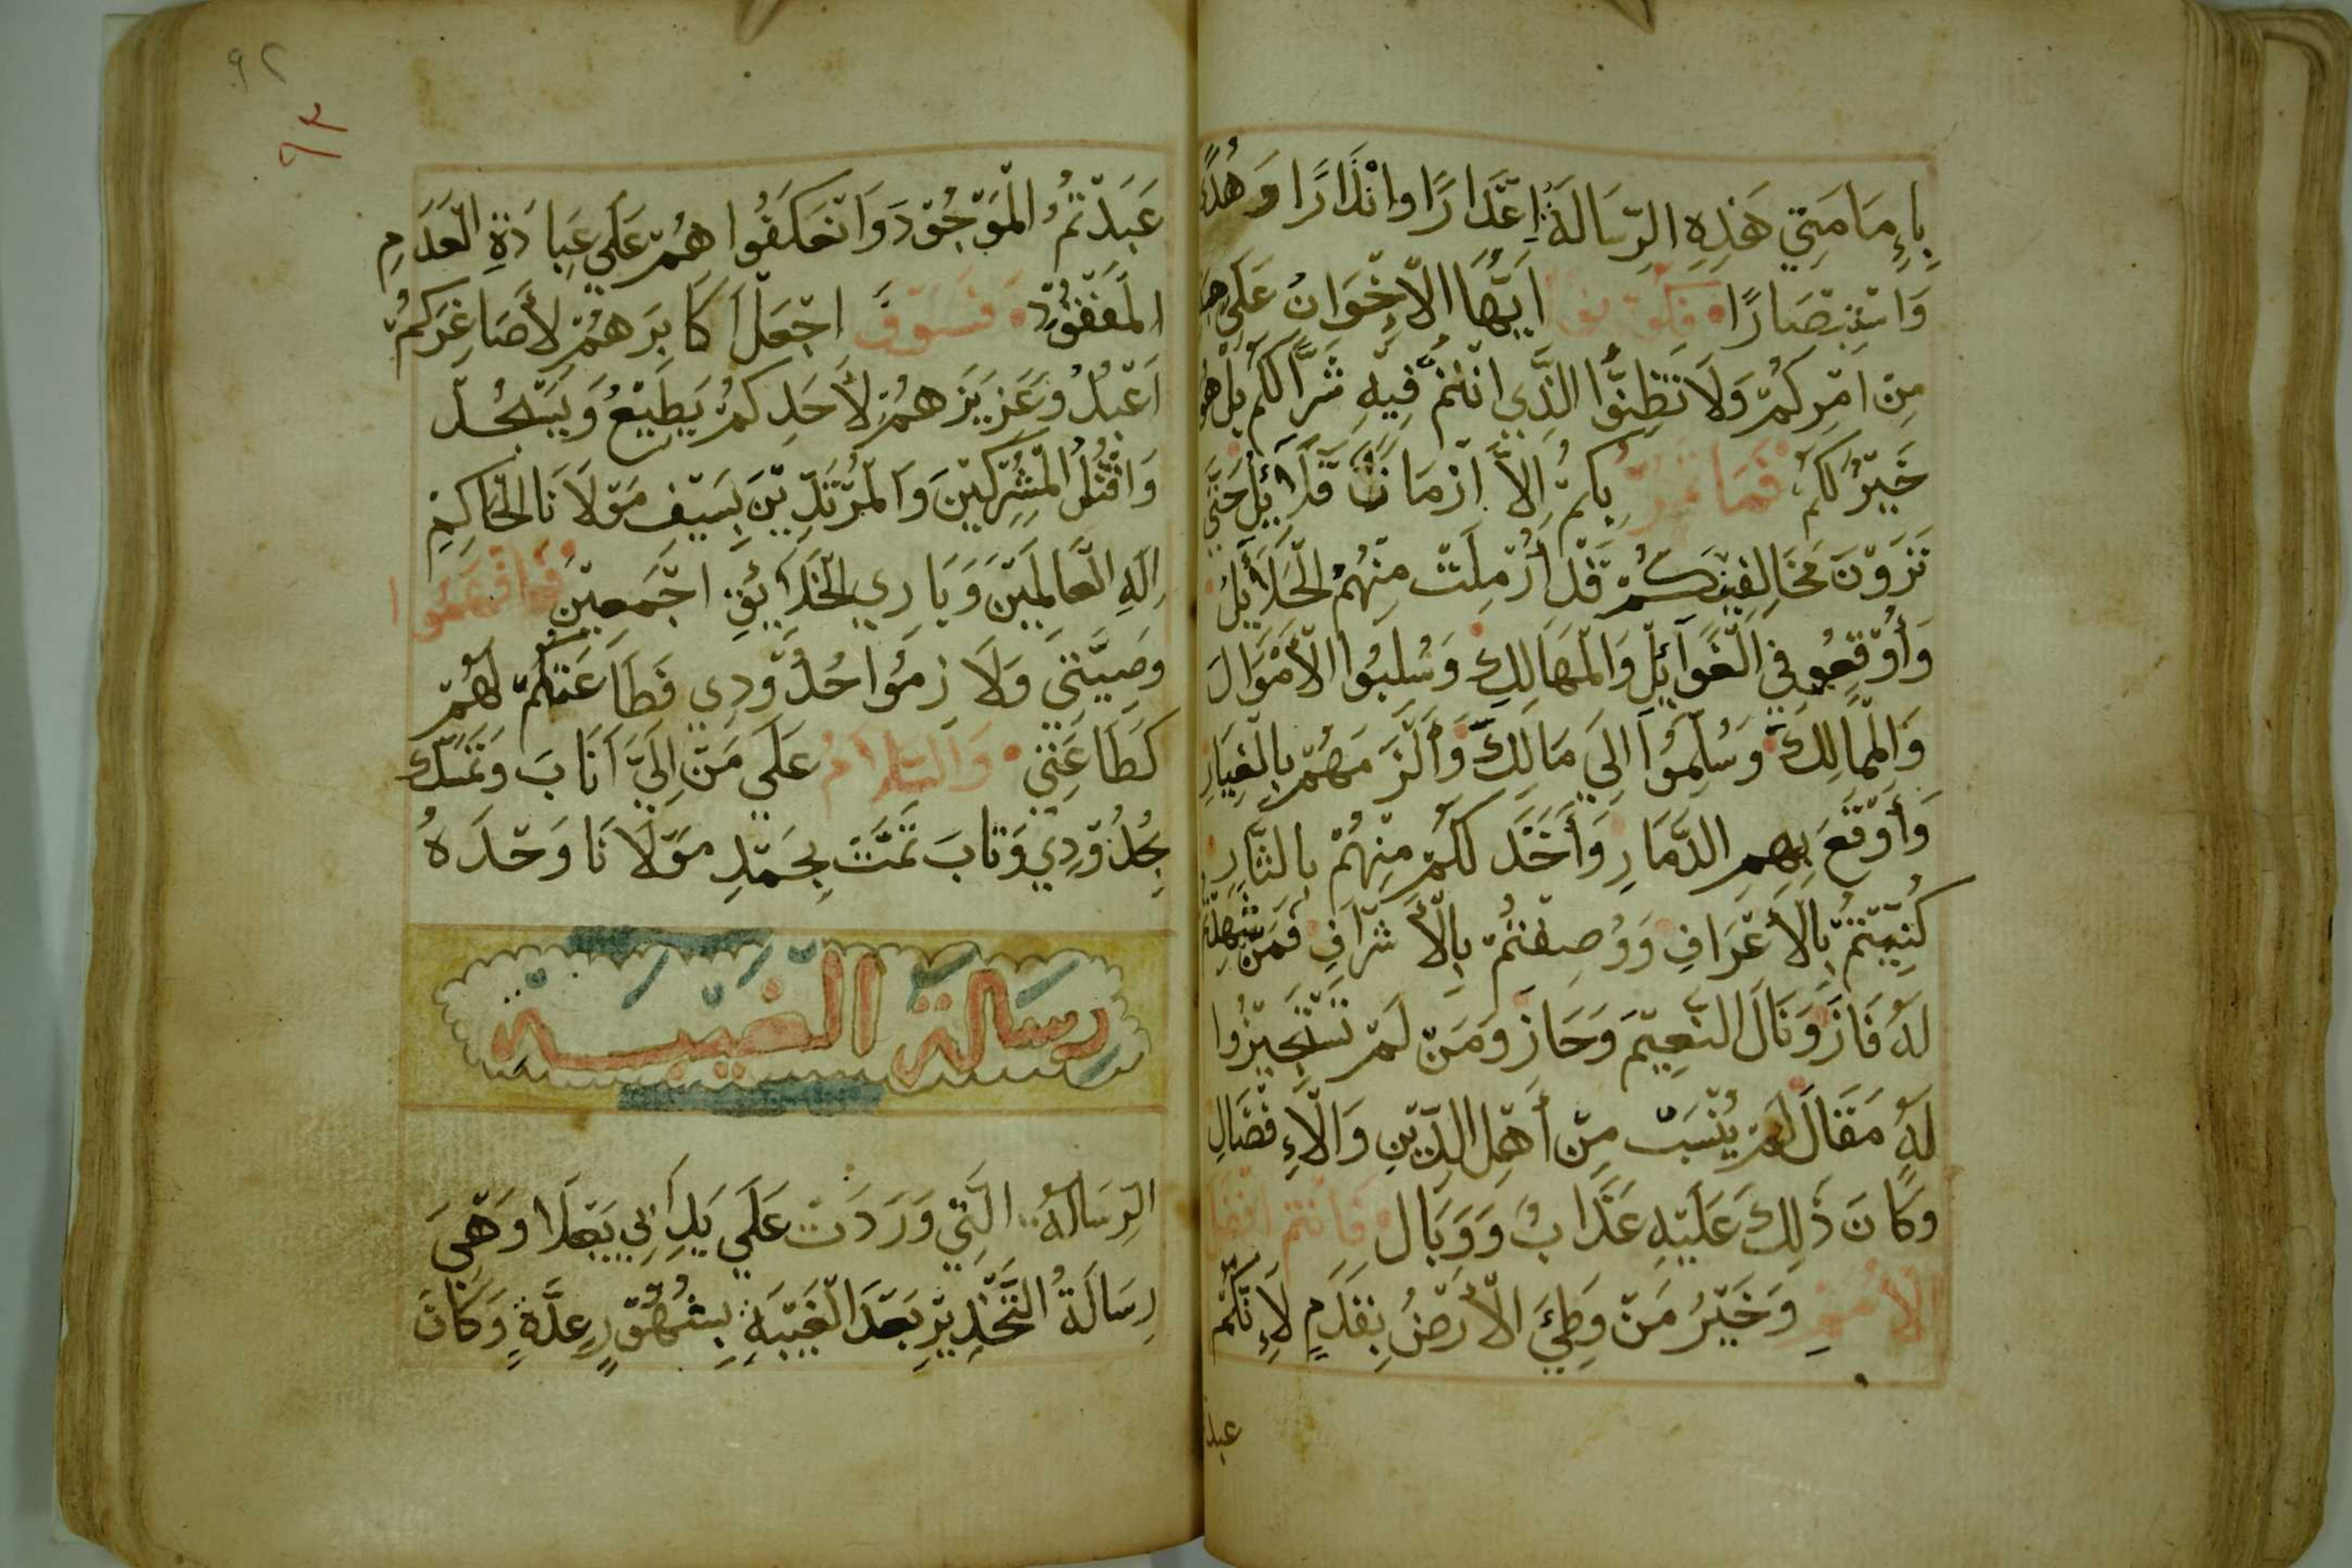 بِإِمَامَتِي هَذِهِ الرِّسَالَةُ إِعْذَارًا وَانْذَارًا وَهُدًى
وَاسْتِبْصَارًا فَكُونُوا اَيُّهَا الْإِخْوَانُ عَلَى
مِنْ اَمْرِكُمْ وَلَا تَظُنُّوا الَّذِي اَنْتُمْ فِيْهِ شَرًّا لَكُمْ بَلْ هُوَ
خَيْرٌ لَكُمْ فَمَا تَمُرُّ بِكُمْ اِلَّا ازْمَانٌ قَلَائِلُ حَتَّى
تَرَوْنَ مُخَالِفِينَكُمْ قَدْ أُرْمِلَتْ مِنْهُمُ الْحَلَائِلُ
وَأُوْقِعُو فِي الْغَوَآئِلِ وَالْمَهَالِكِ وَسُلِبُوا الْأَمْوَالَ
وَالْمَمَالِكَ وَسُلِّمُوا اِلَى مَالِكَ وَأُلْزَمَهُمْ بِالْغِيَارِ
وَأَوْقَعَ بِهِمِ الدَّمَارِ وَأَخَذَ لَكُمْ مِنْهُمْ بِالثَّارِ
كُنِّيْتُمْ بِالْأَعْرَافِ وَوُصِفْتُمْ بِالْأَشْرَافِ فَمَنْ شَهِدْتُمْ
لَهُ فَازَ وَنَالَ النَّعِيْمَ وَحَازَ وَمَنْ لَمْ تَسْتَجِيْزُوا
لَهُ مَقَالَ لَمْ يُنْسَبْ مِنْ أَهْلِ الدِّيْنِ وَالْإِفْضَالِ
وَكَانَ ذَلِكَ عَلَيْهِ عَذَابٌ وَوَبَال فَأَنْتُمْ افْضَلَ
الْأُمَمِ وَخَيْرُ مَنْ وَطِئَ الْأَرْضُ بِقَدَمٍ لِأَنَّكُمْ
عبد
٩٢
٩٣
عَبَدْتُمُ الْمَوْجُوْدَ وَانْعَكَفُوا هُمْ عَلَى عِبَادَةِ الْعَدَمِ
الْمَفْقُوْدِ فَسَوْفَ اجْعَلْ اَكَابِرَهُمْ لِأَصَاغِرَكُمْ
اَعْبُدُ وَعَزِيْزَهُمْ لِأَحَدِكُمْ يَطِيْعُ وَيَسْجُدُ
وَاقْتُلُ الْمُشْرِكِيْنَ وَالْمُرْتَدِّيْنَ بِسَيْفِ مَوْلَانَا الْحَاكِمِ
اِلَهِ الْعَالَمِيْنَ وَبَارِي الْخَلَائِقِ اَجْمَعِيْنَ فَافْهَمُوا
وَصِيَّتِي وَلَازِمُوا حُدُوْدِي فَطَاعَتَكُمْ لَهُمْ
كَطَاعَتِي وَالسَّلَامُ عَلَى مَنْ اِلَيَّ اَنَابَ وَتَمَسَّكَ
بِحُدُوْدِي وَتَابَ تَمَّتْ بِحَمْدِ مَوْلَانَا وَحْدَهُ
رسالة الغيبة
الرِّسَالَةُ الَّتِي وَرَدَتْ عَلَى يَدِ اَبِي يَعْلَا وَهِيَ
رِسَالَةُ التَّحْذِيْرِ بَعْدَ الْغَيْبَةِ بِشُهُوْرٍ عِدَّةٍ وَكَانَ